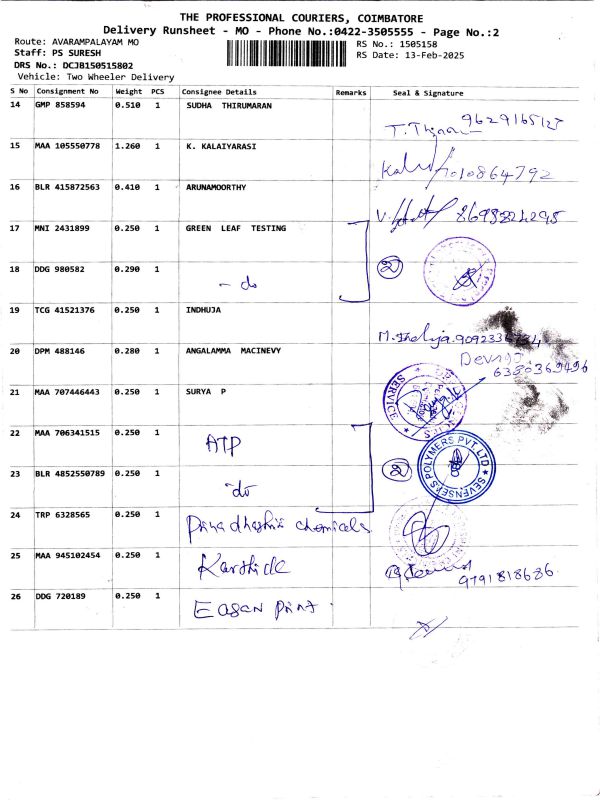 THE PROFESSIONAL COURIERS, COIMBATORE
Delivery Runsheet - MO - Phone No.:0422-3505555 - Page No.:2
Route: AVARAMPALAYAM MO
RS No.: 1505158
Staff: PS SURESH
RS Date: 13-Feb-2025
DRS No.: DCJB150515802
Vehicle: Two Wheeler Delivery
S No Consignment No Weight PCS Consignee Details Remarks Seal & Signature
14 GMP 858594 0.510 1 SUDHA THIRUMARAN
15 MAA 105550778 1.260 1 K. KALAIYARASI 7010864792
16 BLR 415872563 0.410 1 ARUNAMOORTHY
17 MNI 2431899 0.250 1 GREEN LEAF TESTING
18 DDG 980582 0.290 1 - do 2
19 TCG 41521376 0.250 1 INDHUJA
20 DPM 488146 0.280 1 ANGALAMMA MACINEVY
21 MAA 707446443 0.250 1 SURYA P SERVICE
22 MAA 706341515 0.250 1 ATP
23 BLR 4852550789 0.250 1 do 2 SEVENSEAS POLYMERS PVT LTD
24 TRP 6328565 0.250 1 chemicals
25 MAA 945102454 0.250 1 9791818686
26 DDG 720189 0.250 1 Easan Print